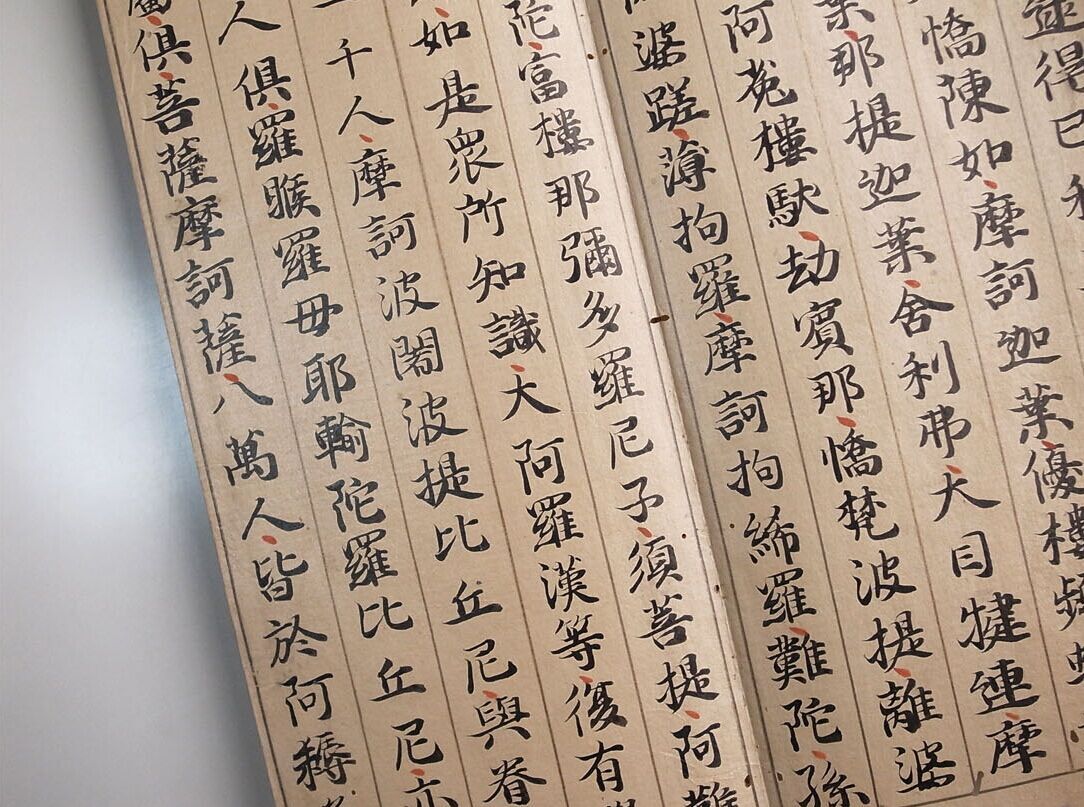 逮得已
憍陳如摩訶迦葉優樓頻
葉那提迦葉舍利弗大目犍連摩
阿㝹樓馱劫賓那憍梵波提離婆
婆蹉薄拘羅摩訶拘絺羅難陀孫
陀富樓那彌多羅尼子須菩提阿難
如是眾所知識大阿羅漢等復有
千人摩訶波闍波提比丘尼與眷
人俱羅睺羅母耶輸陀羅比丘尼亦
俱菩薩摩訶薩八萬人皆於阿耨